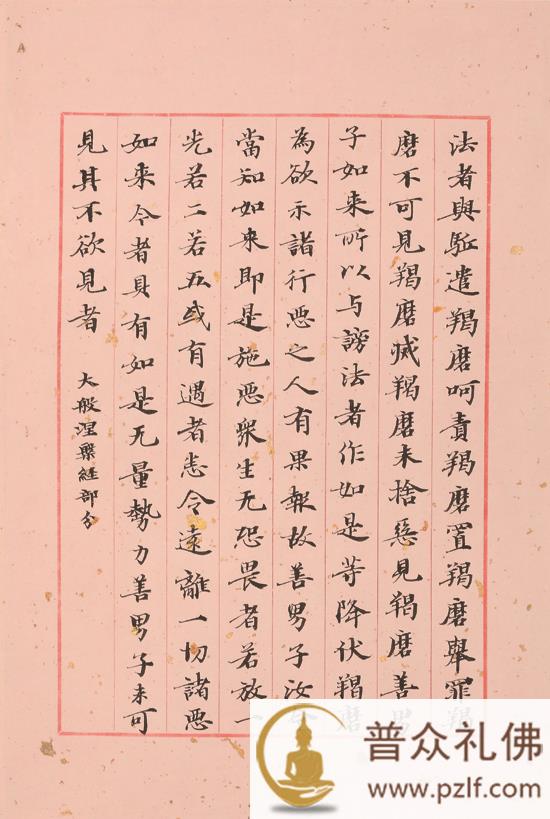 法者與駈遣羯磨呵責羯磨置羯磨舉罪羯
磨不可見羯磨烕羯磨未捨惡見羯磨善男
子如来所以与謗法者作如是等降伏羯磨
為欲示諸行惡之人有果報故善男子汝今
當知如来即是施惡衆生无恐畏者若放一
光若二若五或有遇者悉令遠離一切諸惡
如来今者具有如是无量勢力善男子未可
見其不欲見者
大般涅槃経部分
普众礼佛
www.pzlf.com